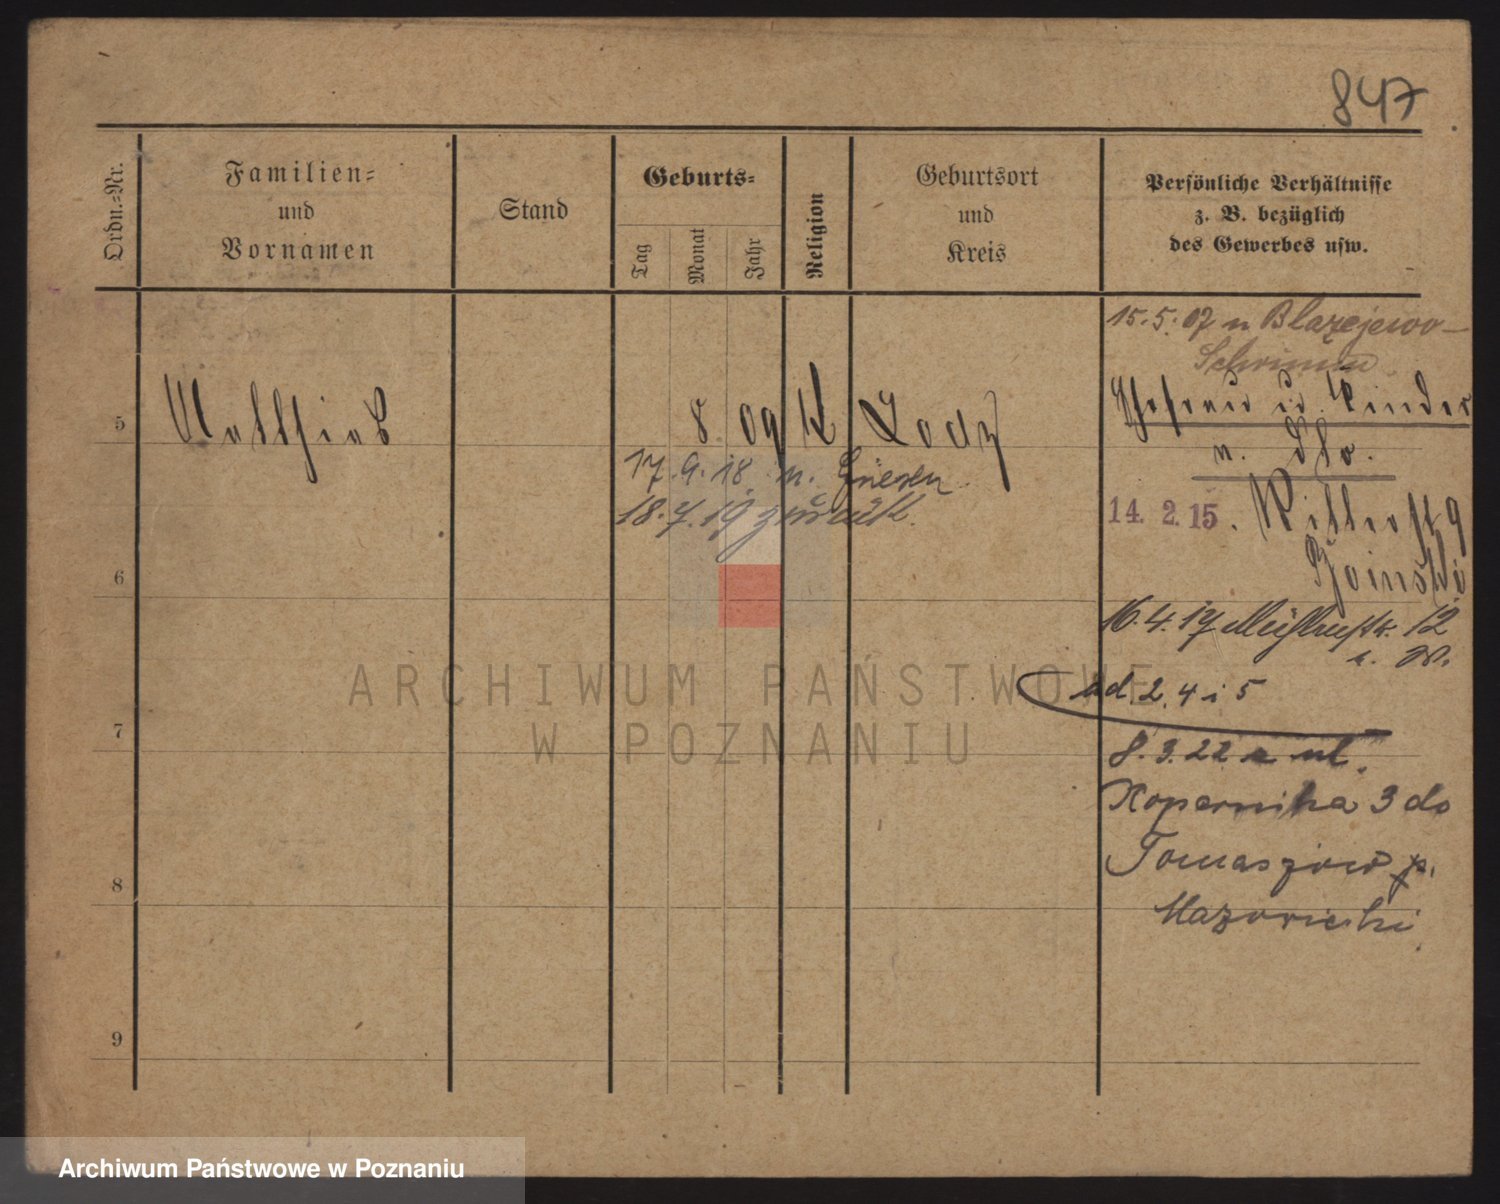 847
Ordn.-Nr.
Familien-
und
Vornamen
Stand
Geburts-
Tag
Monat
Jahr
Religion
Geburtsort
und
Kreis
Persönliche Verhältnisse
z. B. bezüglich
des Gewerbes usw.
15.5.07 n Blazejewo-
Schrimm
5
Matthias
8. 09
K
Lodz
Ehefrau u. Kinder
n. dto.
17.9.18 n. Gnesen
18.7.19 zurück.
14. 2. 15.
6
16.4.17 Mühlenstr. 12
ad 2, 4 i 5
7
8.3.22 z ul.
Kopernika 3 do
Tomaszów p.
8
Mazowiecki
9
ARCHIWUM PAŃSTWOWE
W POZNANIU
Archiwum Państwowe w Poznaniu